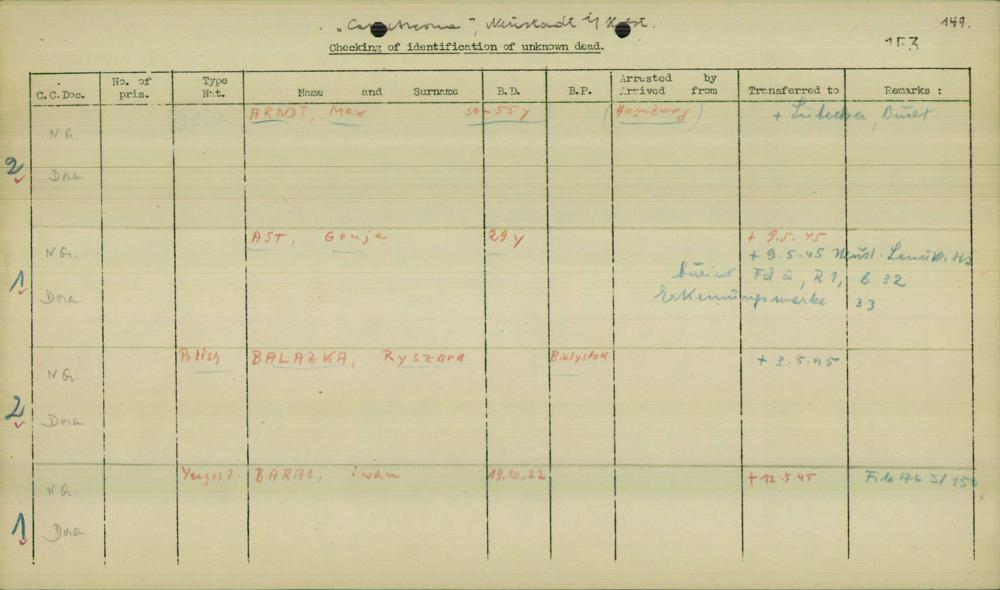 "Cap Arcona", Neustadt i/ Holst. 149.
Checking of identification of unknown dead. 153
C.C.Doc. No. of pris. Type Nat. Name and Surname B.D. B.P. Arrested by Arrived from Transferred to Remarks :
ARNDT, Max 50-55y (Hamburg) + Lübecker Bucht
N G.
2
Dora
AST, Gonja 29 y + 9.5.45
N G. + 9.5.45 Neust.
1 buried Fd Q, R 1, 6 32
Dora Erkennungsmarke 33
Polish BALAZKA, Ryszard Bialystok + 3.5.45
N G.
2
Dora
Yougosl. BARAO, iwan 19.10.22 + 12.5.45
N G.
1
Dora